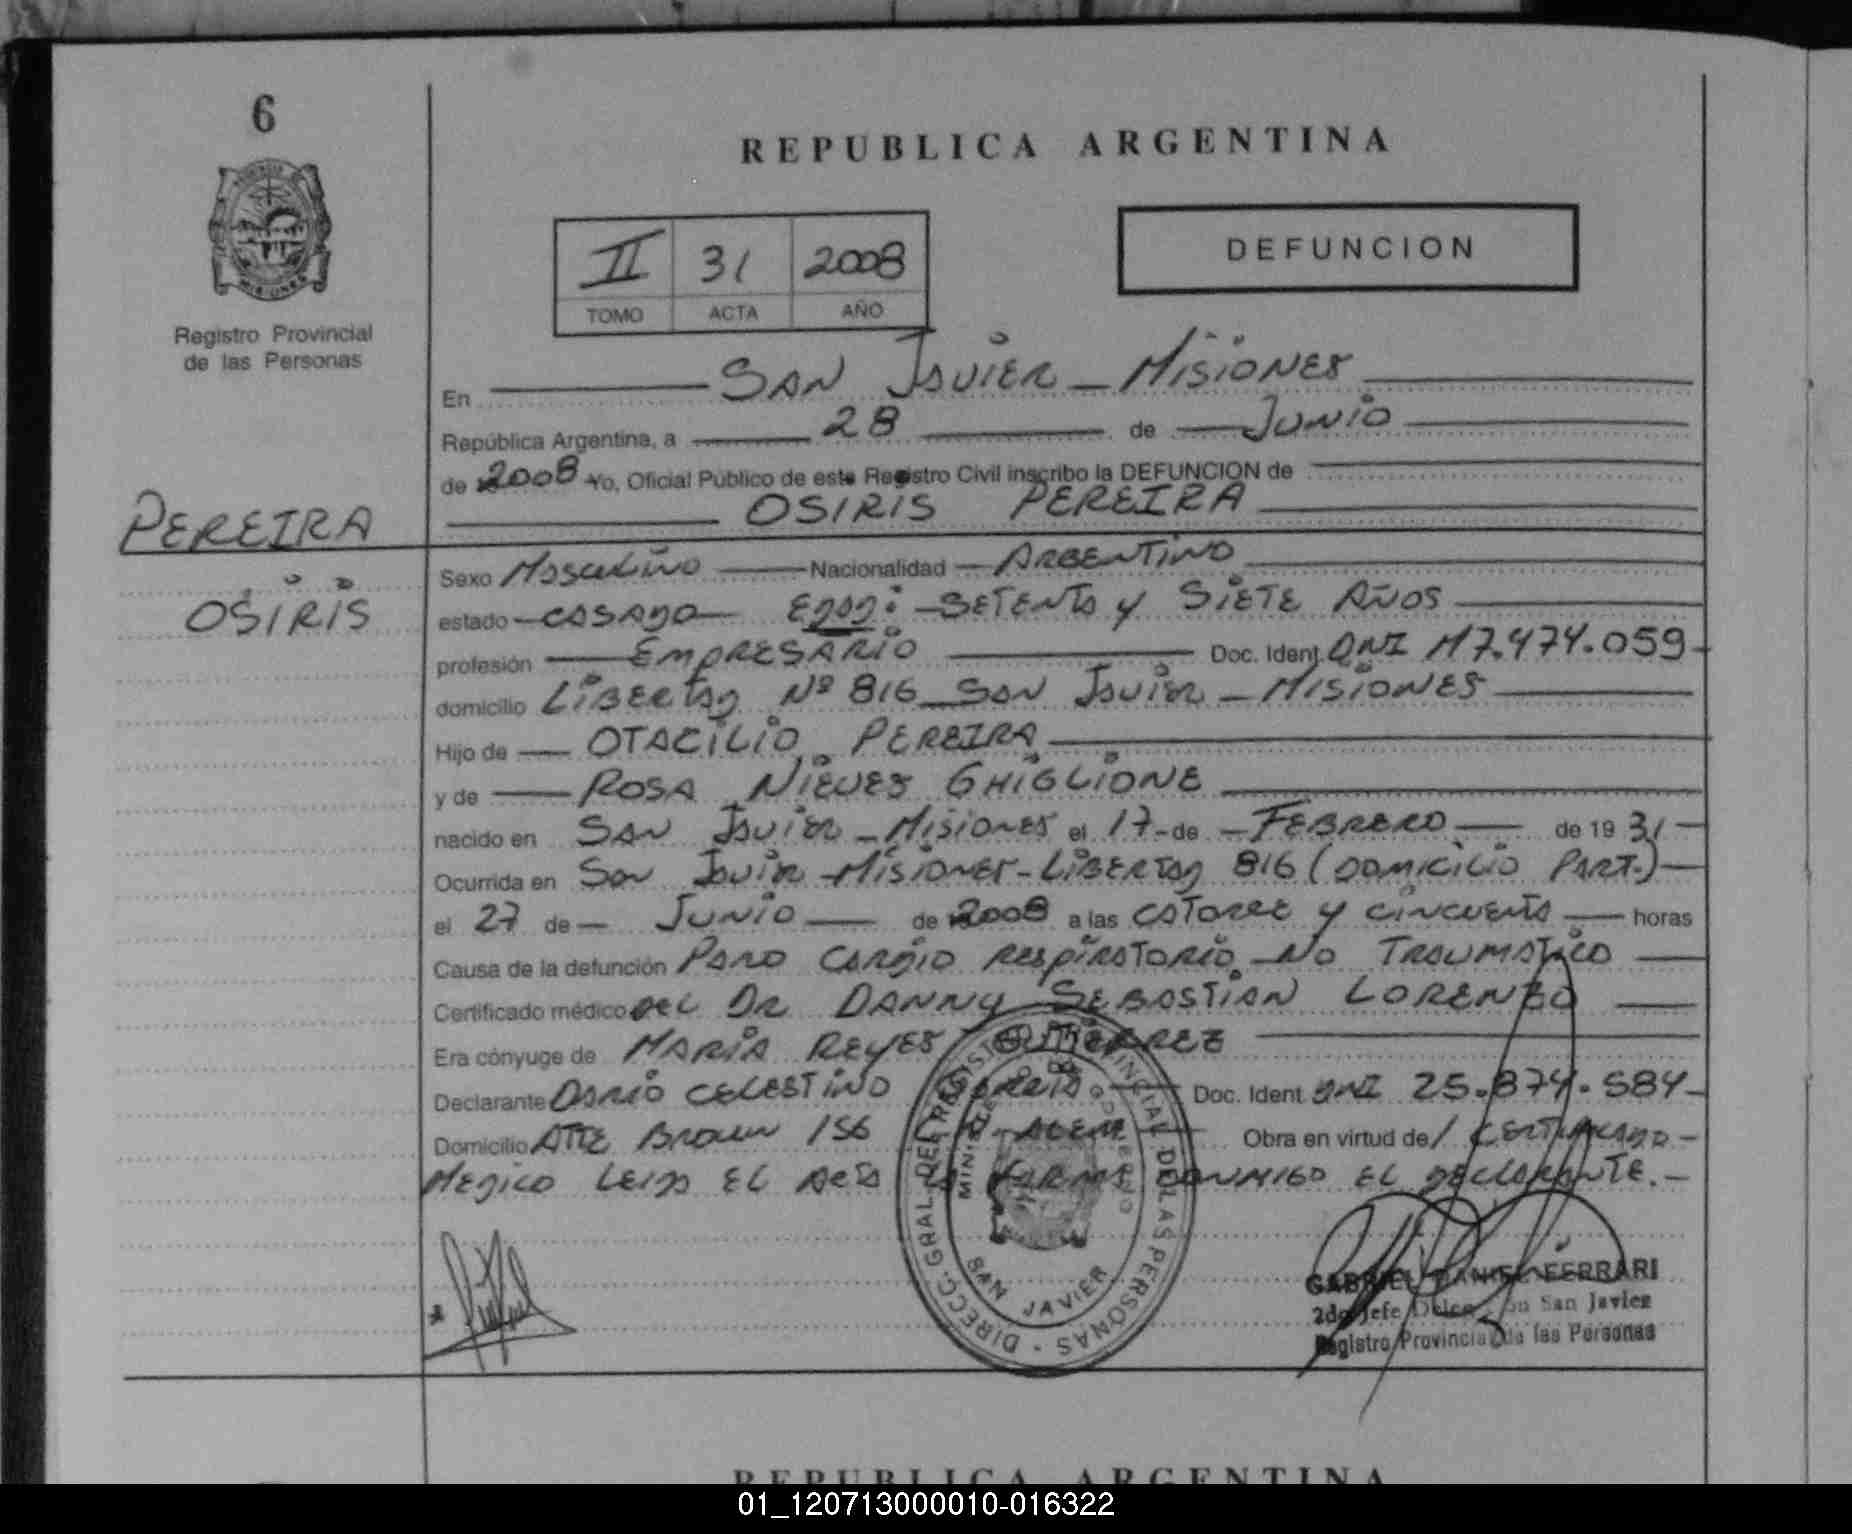 6
REPUBLICA ARGENTINA
II 31 2008
TOMO ACTA AÑO
DEFUNCION
Registro Provincial
de las Personas
PEREIRA
OSIRIS
En SAN JAVIER - MISIONES
República Argentina, a 28 de JUNIO
de 2008 Yo, Oficial Público de este Registro Civil inscribo la DEFUNCION de
OSIRIS PEREIRA
Sexo MASCULINO Nacionalidad ARGENTINO
estado CASADO EDAD: SETENTA y SIETE AÑOS
profesión EMPRESARIO Doc. Ident. DNI M7.474.059
domicilio LIBERTAD Nº 816 SAN JAVIER - MISIONES
Hijo de OTACILIO PEREIRA
y de ROSA NIEVES GHIGLIONE
nacido en SAN JAVIER - MISIONES el 17 de FEBRERO de 19 31
Ocurrida en SAN JAVIER - MISIONES - LIBERTAD 816 (DOMICILIO PART.)
el 27 de JUNIO de 2008 a las CATORCE y CINCUENTA horas
Causa de la defunción PARO CARDIO RESPIRATORIO NO TRAUMATICO
Certificado médico DEL DR DANNY SEBASTIAN LORENZO
Era cónyuge de MARIA REYES GUTIERREZ
Declarante DARIO CELESTINO Doc. Ident. DNI 25.874.584
Domicilio ALTE BROWN 156 L.N. ALEM Obra en virtud de 1 CERTIFICADO
MEDICO LEIDA EL ACTA LA FIRMA CONMIGO EL DECLARANTE.-
DIRECC. GRAL. DEL REGISTRO PROVINCIAL DE LAS PERSONAS
MINISTERIO DE GOBIERNO
SAN JAVIER
GABRIEL DANIEL FERRARI
2do Jefe San Javier
Registro Provincial de las Personas
REPUBLICA ARGENTINA
01_120713000010-016322